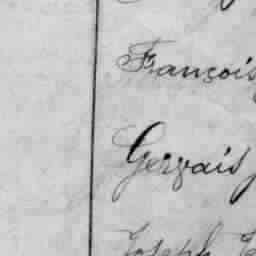 François
Gervais
Joseph